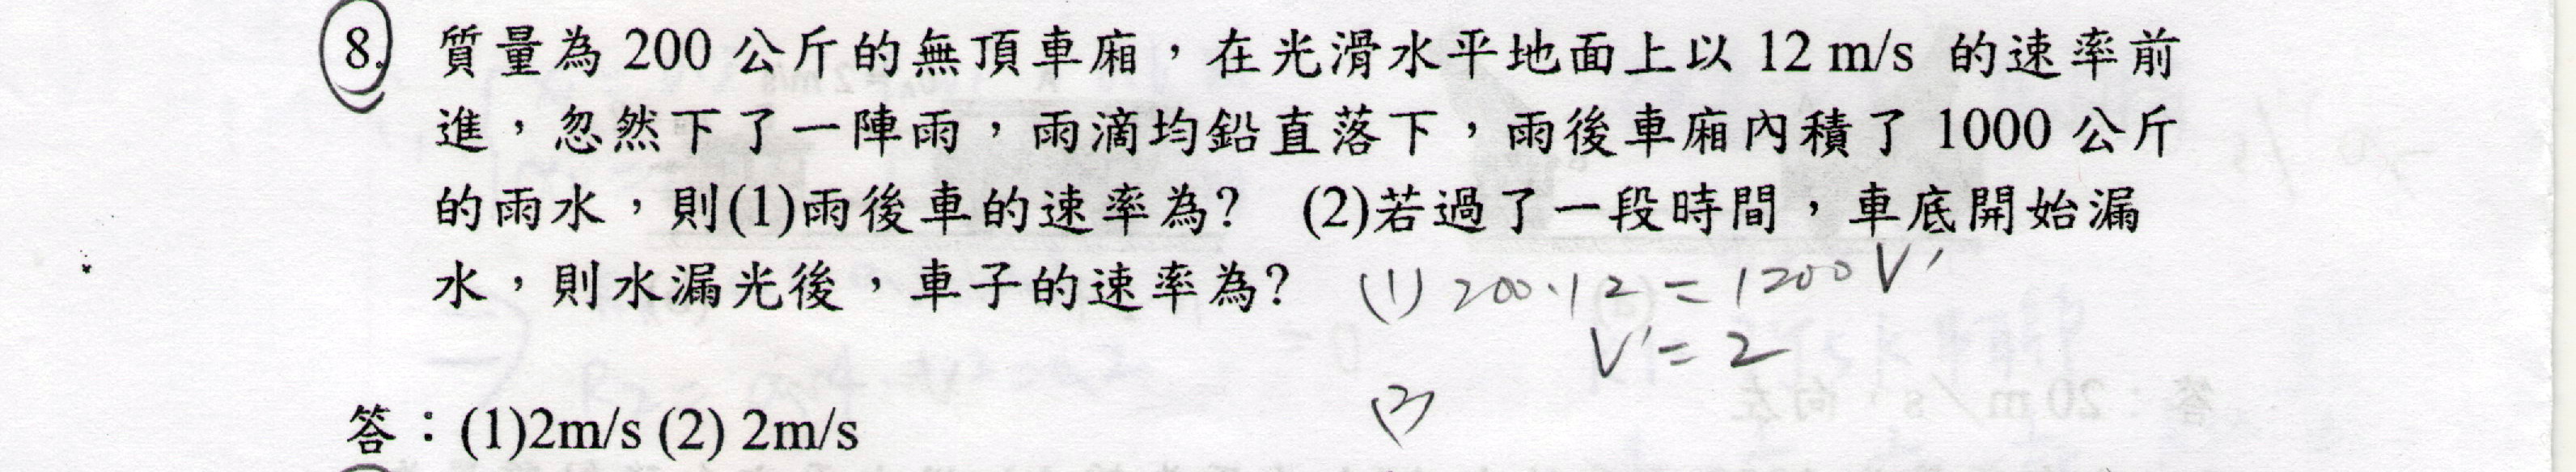 8. 質量為 200 公斤的無頂車廂，在光滑水平地面上以 12 m/s 的速率前
進，忽然下了一陣雨，雨滴均鉛直落下，雨後車廂內積了 1000 公斤
的雨水，則(1)雨後車的速率為? (2)若過了一段時間，車底開始漏
水，則水漏光後，車子的速率為?
(1) 200·12 = 1200 V′
V′ = 2
(2)
答：(1)2m/s (2) 2m/s